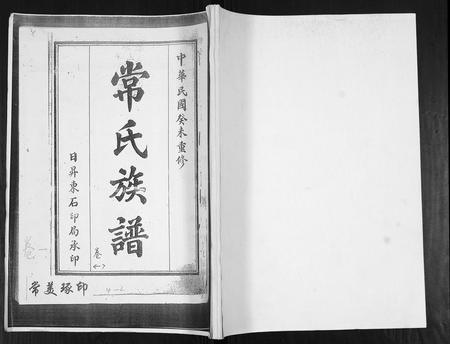 中華民國癸未重修
常氏族譜
卷(一)
日昇東石印局承印
卷一
常美琢印